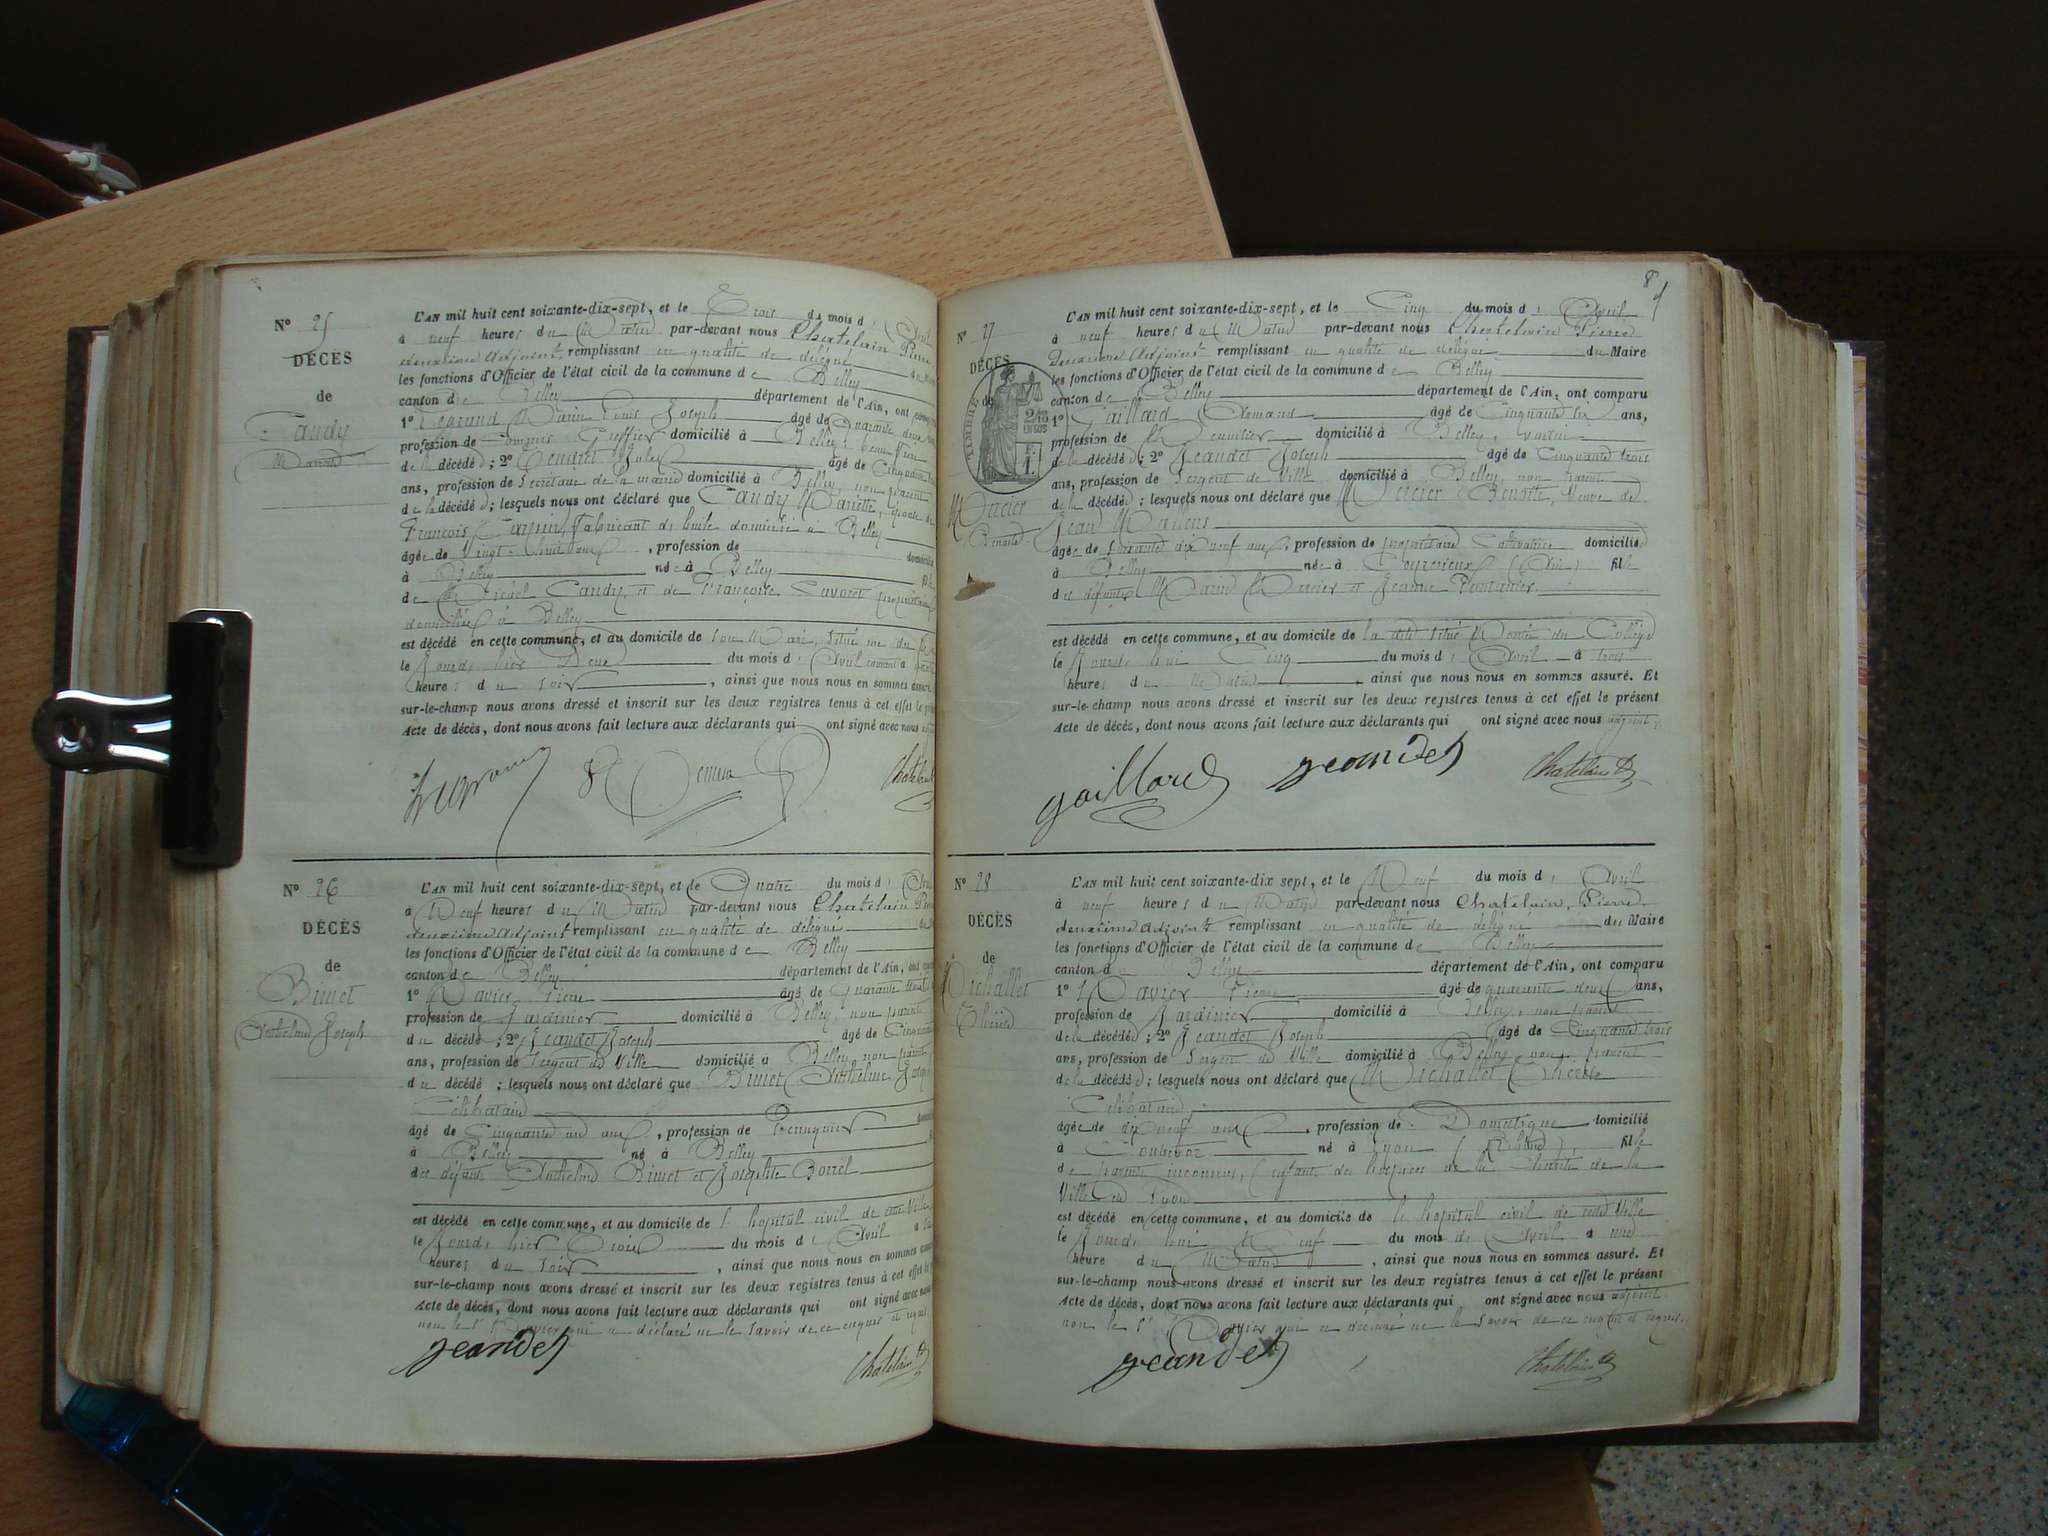 N° 25
DÉCÈS
de
Candy
Mariette
L'AN mil huit cent soixante-dix-sept, et le Trois du mois d' Avril
à neuf heures du Matin par-devant nous Chatelain Pierre
deuxième Adjoint remplissant en qualité de délégué
les fonctions d'Officier de l'état civil de la commune de Belley
canton de Belley département de l'Ain, ont comparu
1° Legrand Marie Louis Joseph âgé de Quarante deux
profession de Commis Greffier domicilié à Belley, beau frère
de la décédée; 2° Jules âgé de Cinquante
ans, profession de Secrétaire de la mairie domicilié à Belley, non parent
de la décédée; lesquels nous ont déclaré que Candy Mariette, épouse de
François fabricant de domicilié à Belley
âgée de Vingt-huit ans, profession de
à Belley née à Belley fille
de Candy et de Françoise
domiciliés à Belley
est décédé en cette commune, et au domicile de son Mari, situé rue du
le Jourd hier Deux du mois d' Avril courant à
heures du soir, ainsi que nous nous en sommes assuré.
sur-le-champ nous avons dressé et inscrit sur les deux registres tenus à cet effet le
Acte de décès, dont nous avons fait lecture aux déclarants qui ont signé avec nous
Legrand Chatelain
N° 26
DÉCÈS
de
Bimet
Anthelme Joseph
L'AN mil huit cent soixante-dix-sept, et le Quatre du mois d' Avril
à Neuf heures du Matin par-devant nous Chatelain Pierre
deuxième Adjoint remplissant en qualité de délégué
les fonctions d'Officier de l'état civil de la commune de Belley
canton de Belley département de l'Ain, ont
1° Davier Pierre âgé de Quarante
profession de Jardinier domicilié à Belley, non parent
du décédé; 2° Jeandet Joseph âgé de Cinquante
ans, profession de Sergent de Ville domicilié à Belley non parent
du décédé; lesquels nous ont déclaré que Bimet Anthelme Joseph
Célibataire
âgé de Cinquante un ans, profession de Perruquier
à Belley né à Belley
des défunts Anthelme Bimet et Josephte Borrel
est décédé en cette commune, et au domicile de l'hopital civil de cette Ville
le Jourd hier Trois du mois d' Avril à
heures du soir, ainsi que nous nous en sommes assuré
sur-le-champ nous avons dressé et inscrit sur les deux registres tenus à cet effet le
Acte de décès, dont nous avons fait lecture aux déclarants qui ont signé avec nous
non le Sr Davier qui a déclaré ne le savoir de ce enquis et requis.
Jeandet Chatelain
84
N° 27
DÉCÈS
de
TIMBRE
Mercier
Benoite
L'AN mil huit cent soixante-dix-sept, et le Cinq du mois d' Avril
à neuf heures du Matin par-devant nous Chatelain Pierre
Deuxième Adjoint remplissant en qualité de délégué du Maire
les fonctions d'Officier de l'état civil de la commune de Belley
canton de Belley département de l'Ain, ont comparu
1° Gaillard âgé de Cinquante six ans,
profession de domicilié à Belley, voisin
de la décédée; 2° Jeandet Joseph âgé de Cinquante trois
ans, profession de Sergent de Ville domicilié à Belley, non parent
de la décédée; lesquels nous ont déclaré que Mercier Benoite, Veuve de
Jean
âgée de Soixante dix neuf ans, profession de propriétaire Cultivatrice domiciliée
à Belley née à Ceyzerieux (Ain) fille
des défunts Mercier et Jeanne
est décédé en cette commune, et au domicile de la dite situé Montée du Collège
le Jourd hui Cinq du mois d' Avril à trois
heures du Matin, ainsi que nous nous en sommes assuré. Et
sur-le-champ nous avons dressé et inscrit sur les deux registres tenus à cet effet le présent
Acte de décès, dont nous avons fait lecture aux déclarants qui ont signé avec nous adjoint.
gaillard Jeandet Chatelain
N° 28
DÉCÈS
de
Michallet
Thérèse
L'AN mil huit cent soixante-dix sept, et le Neuf du mois d' Avril
à neuf heures du Matin par-devant nous Chatelain, Pierre,
deuxième Adjoint remplissant en qualité de délégué du Maire
les fonctions d'Officier de l'état civil de la commune de Belley
canton de Belley département de l'Ain, ont comparu
1° Davier Pierre âgé de quarante deux ans,
profession de Jardinier domicilié à Belley, non parent
de la décédée; 2° Jeandet Joseph âgé de Cinquante trois
ans, profession de Sergent de Ville domicilié à Belley non parent
de la décédée; lesquels nous ont déclaré que Michallet Thérèse
Célibataire,
âgée de dix neuf ans, profession de Domestique domicilié
à né à Lyon (Rhône), fille
de parents inconnus, (enfant des hospices de la Charité de la
Ville de Lyon
est décédé en cette commune, et au domicile de l'hopital civil de cette Ville
le Jourd hui Neuf du mois d' Avril à une
heure du Matin, ainsi que nous nous en sommes assuré. Et
sur-le-champ nous avons dressé et inscrit sur les deux registres tenus à cet effet le présent
Acte de décès, dont nous avons fait lecture aux déclarants qui ont signé avec nous adjoint
non le Sr Davier qui a déclaré ne le savoir de ce enquis et requis.
Jeandet Chatelain